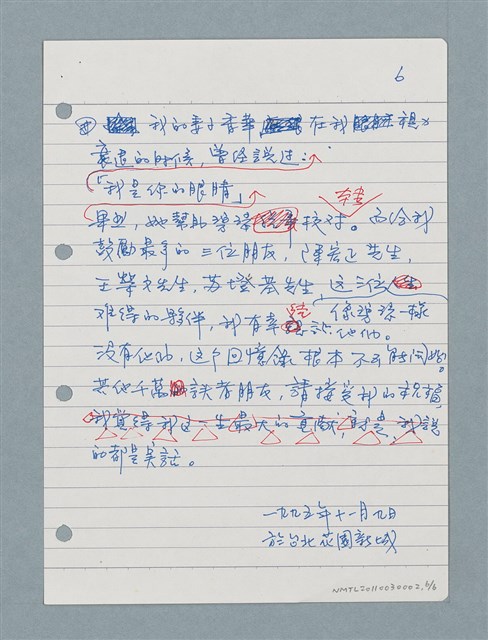 6
我的妻子香華 在我視力
衰退的時候，曾經說过：
「我是你的眼睛」
畢业，她幫助 校对。本書
鼓勵最多的三位朋友，陳宏正先生，
王榮文先生，苏墱基先生，這三位
难得的夥伴，我有幸结識他們。像 一樣
没有他們，这个回憶錄根本不可能问世。
其他千萬讀者朋友，請接受我的祝福，
我覺得我这一生最大的貢献，財產，我說
的都是实話。
一九九五年十一月九日
於台北花園新城
NMTL20110030002.6/6